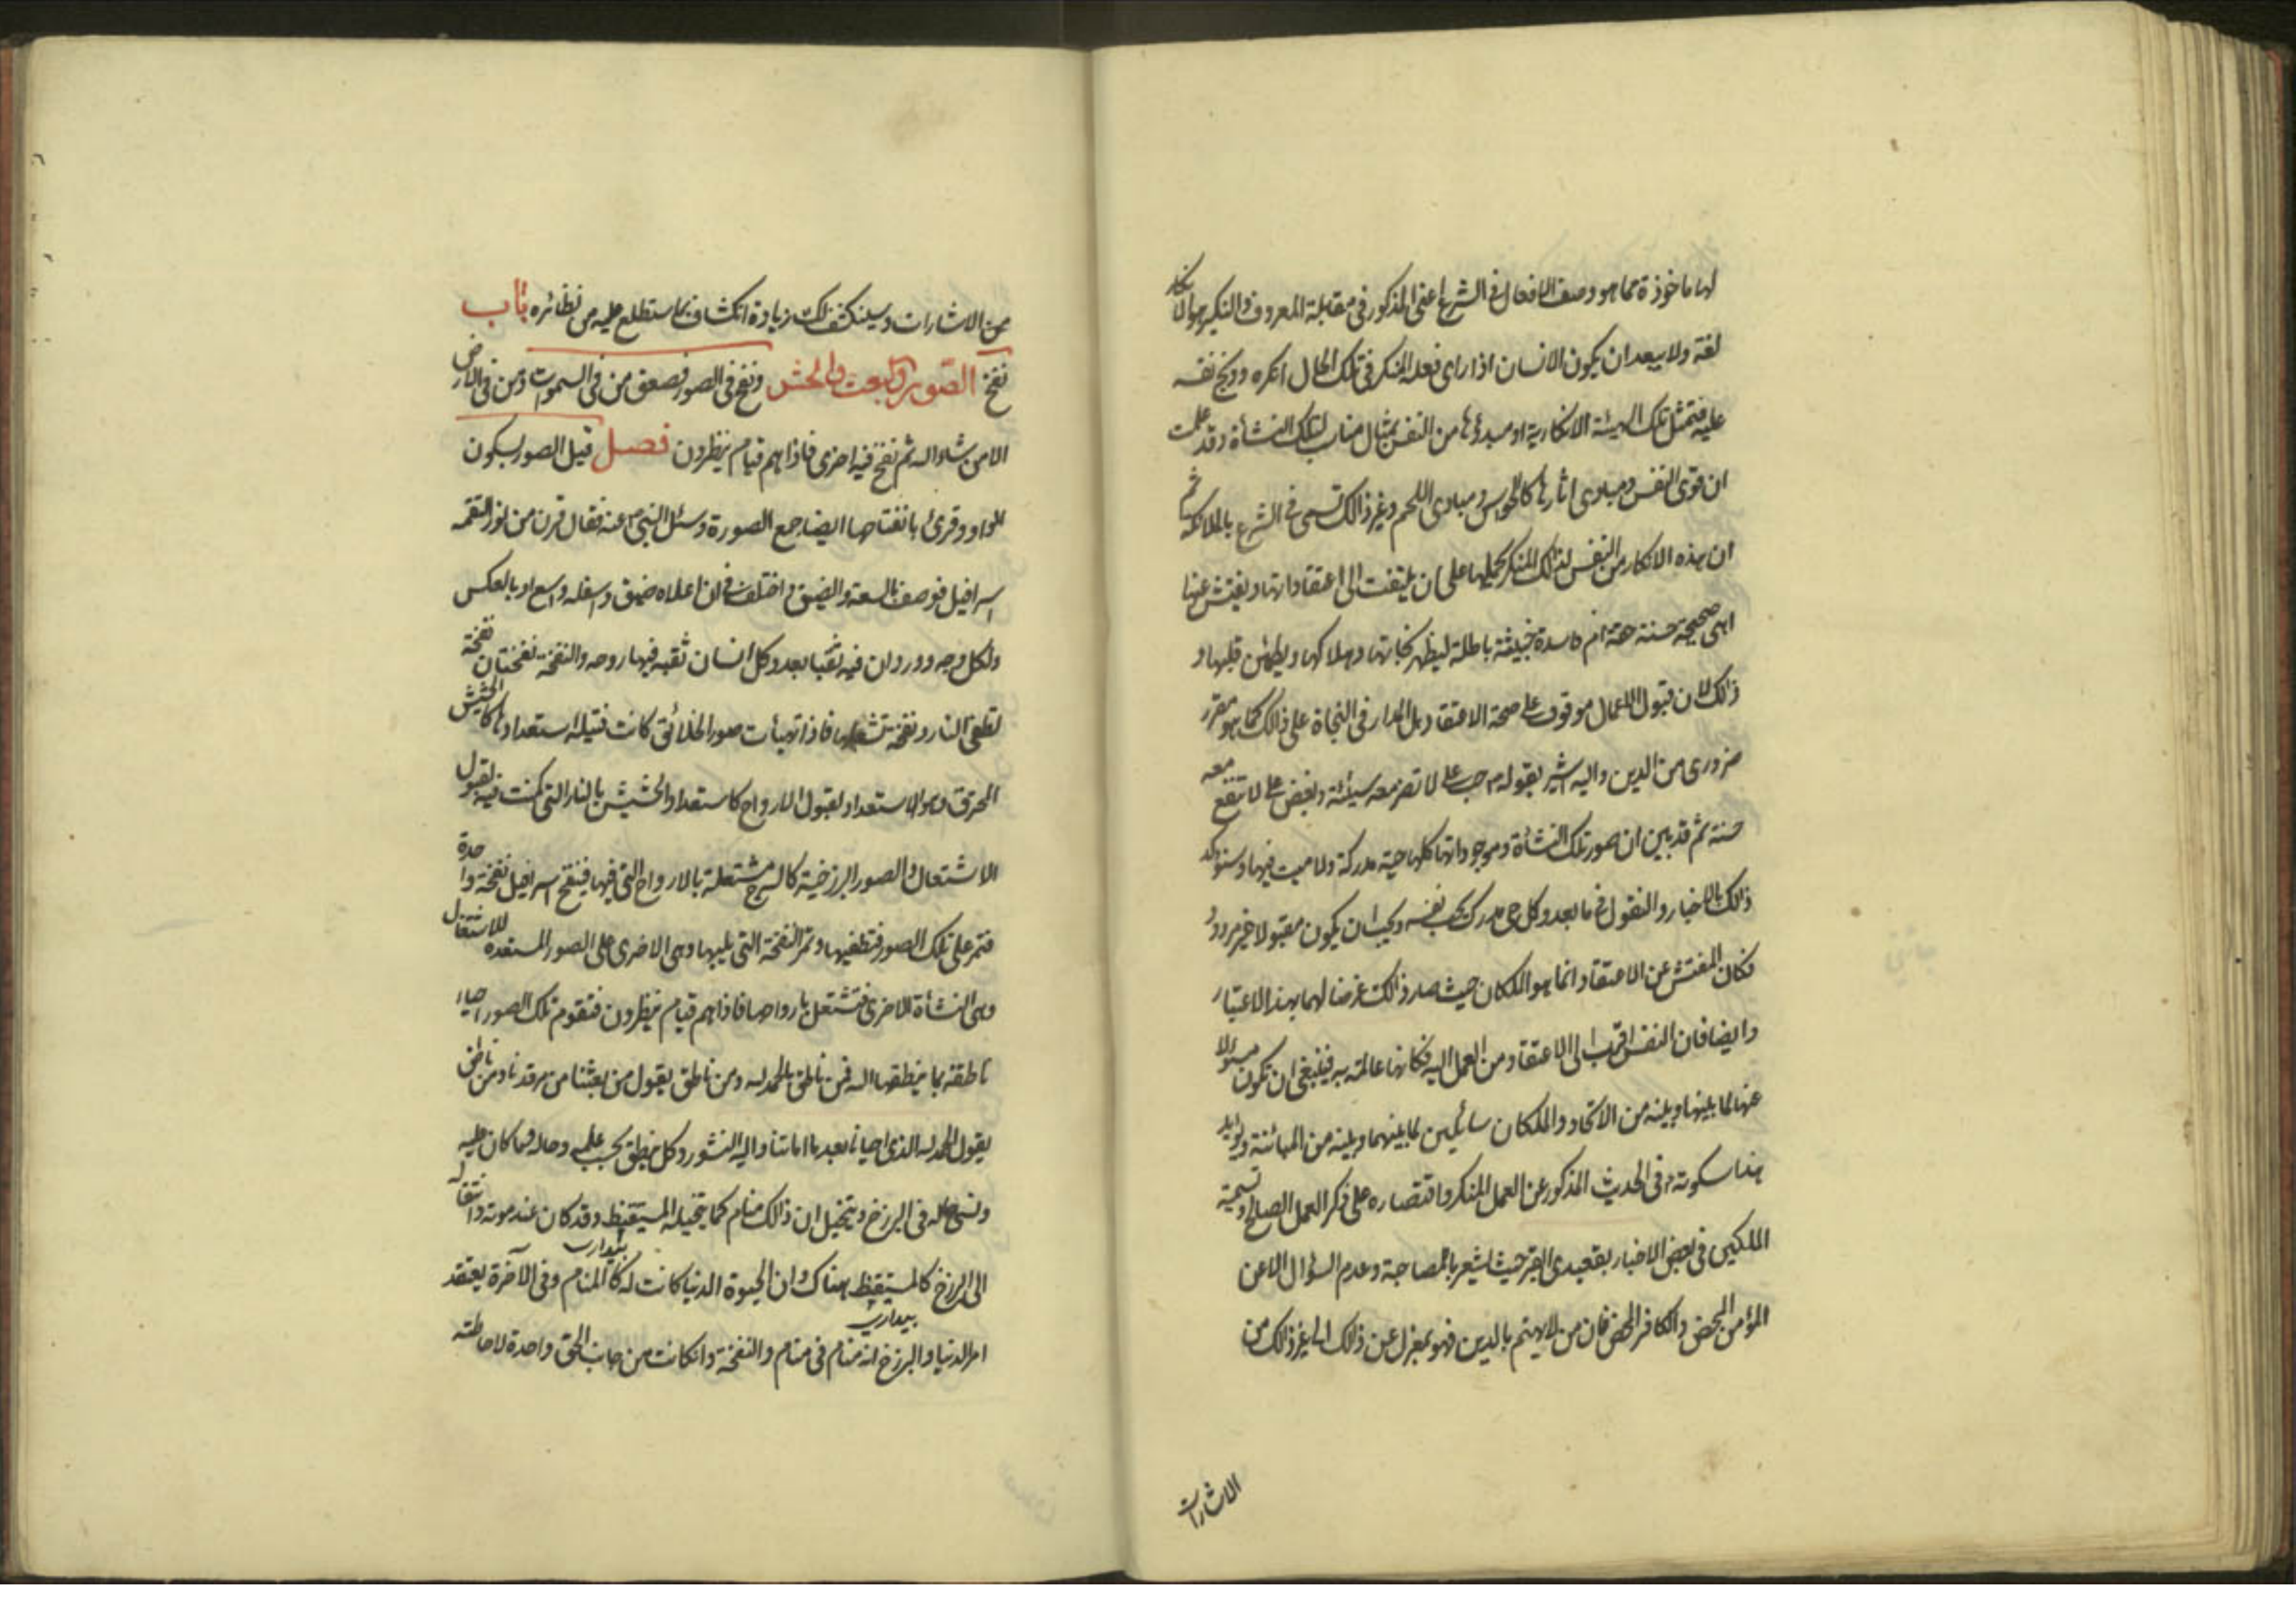 لها ماخوذة مما هو وصف الافعال فى الشرع اعنى المذكور فى مقابلة المعروف والنكير هو الانكار
لغة ولا يبعد ان يكون الانسان اذا راى فعله المنكر فى تلك الحال انكره ووبخ نفسه
عليه فتمثل تلك الهيئة الانكارية او مبدؤها من النفس بمثال مناسب لتلك النشأة وقد علمت
ان قوى النفس ومبادى اثارها كالحواس ومبادى اللحم وغير ذالك تسمى فى الشرع بالملائكة ثم
ان هذه الانكار من النفس لذالك المنكر يحملها على ان يلتفت الى اعتقاداتها ويفتش عنها
اهى صحيحة حسنة حقة ام فاسدة خبيثة باطلة ليظهر نجاتها وهلاكها ويطمئن قلبها و
ذالك لان قبول الاعمال موقوف على صحة الاعتقاد بل المدار فى النجاة على ذالك كما هو مقرر
ضرورى من الدين واليه اشير بقوله حب على لا تضر معه سيئة وبغض على لا تنفع معه
حسنة ثم قد تبين ان صور تلك النشأة وموجوداتها كلها حية مدركة ولا ميت فيها وسنؤكد
ذالك بالاخبار والنقول فى ما بعد وكل حى مدرك يحب نفسه ويحب ان يكون مقبولا غير مردود
فكان المفتش عن الاعتقاد انما هو الملكان حيث صار ذالك غرضا لهما بهذا الاعتبار
وايضا فان النفس اقرب الى الاعتقاد من العمل اليه فكانها عالمة به فينبغى ان تكون مسؤلا
عنها لما بينها وبينه من الاتحاد والملكان سائلين لما بينهما وبينه من المبائنة ويؤيد
هذا سكوته فى الحديث المذكور عن العمل المنكر واقتصاره على ذكر العمل الصالح وتسمية
الملكين فى بعض الاخبار بقعيدى القبر حيث يشعر بالمصاحبة وعدم السؤال الا عن
المؤمن المحض والكافر المحض فان من لا يهتم بالدين فهو بمعزل عن ذالك الى غير ذالك من
الاشارات
من الاشارات وسينكشف لك زيادة انكشاف بما ستطلع عليه من نظائره باب
نفخ الصور والبعث والحشر ونفخ فى الصور فصعق من فى السموات ومن فى الارض
الا من شاء الله ثم نفخ فيه اخرى فاذا هم قيام ينظرون فصل قيل الصور بسكون
الواو وقرئ بانفتاحها ايضا جمع الصورة وسئل النبى ص عنه فقال قرن من نور التقمه
اسرافيل فوصف بالسعة والضيق واختلف فى ان اعلاه ضيق واسفله واسع او بالعكس
ولكل وجه وورد ان فيه ثقبا بعدد كل انسان ثقبه فيها روحه والنفخة نفختان نفخة
تطفى النار ونفخة تشعلها فاذا تهيأت صور الخلائق كانت فتيلة استعدادها كالحشيش
المحرق وهو الاستعداد لقبول الارواح كاستعداد الحشيش بالنار التى كمنت فيه لقبول
الاشتعال والصور البرزخية كالسرج مشتعلة بالارواح التى فيها فينفخ اسرافيل نفخة واحدة
فتمر على تلك الصور فتطفيها وتمر النفخة التى تليها وهى الاخرى على الصور المستعدة للاشتعال
وهى النشأة الاخرى فتشتعل بارواحها فاذا هم قيام ينظرون فتقوم تلك الصور احياء
ناطقة بما ينطقها الله فمن ناطق بالحمد لله ومن ناطق يقول من بعثنا من مرقدنا ومن ناطق
يقول الحمد لله الذى احيانا بعد ما اماتنا واليه النشور وكل ينطق بحسب علمه وحاله وما كان عليه
ونسى حاله فى البرزخ ويتخيل ان ذالك منام كما يتخيله المستيقظ وقد كان عند موته وانتقاله
الى البرزخ كالمستيقظ هناك وان الحيوة الدنيا كانت له كالمنام وفى الآخرة يعتقد
بيدارى
امر الدنيا والبرزخ انه منام فى منام والنفخة وان كانت من جانب الحق واحدة لاحاطته
بيدارى